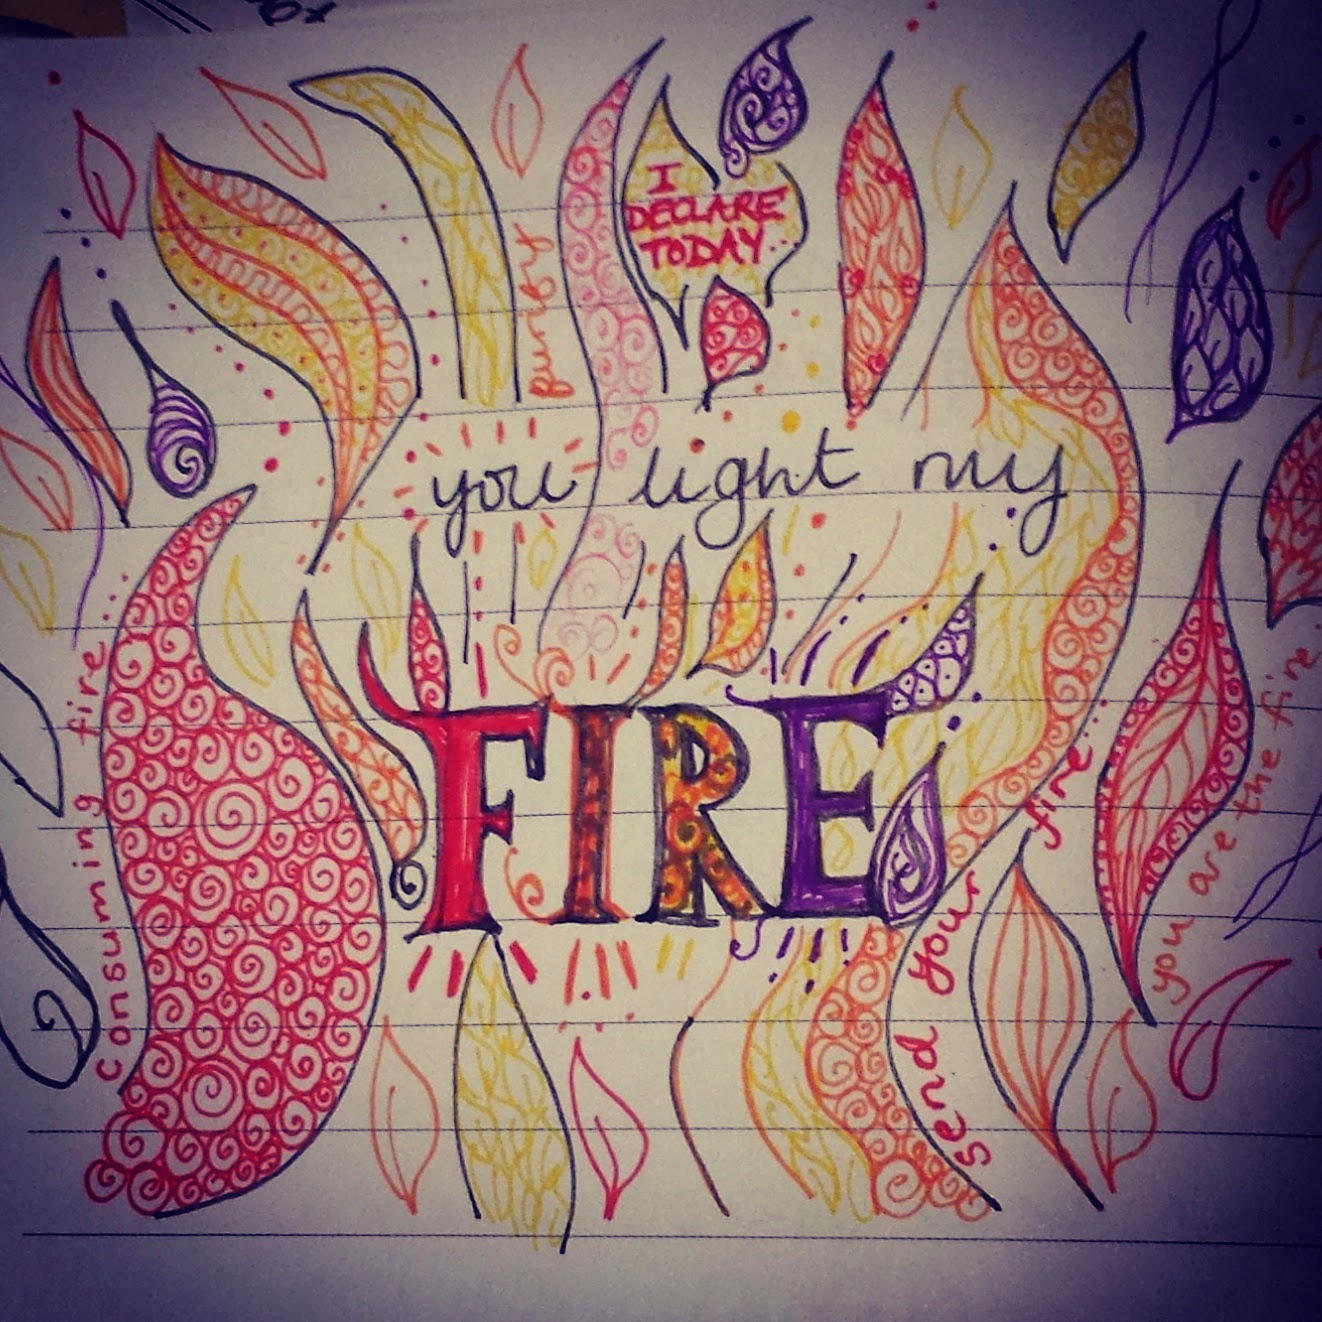 I
DECLARE
TODAY...
you light my
FIRE
Consuming fire...
Send your fire...
you are the fire...